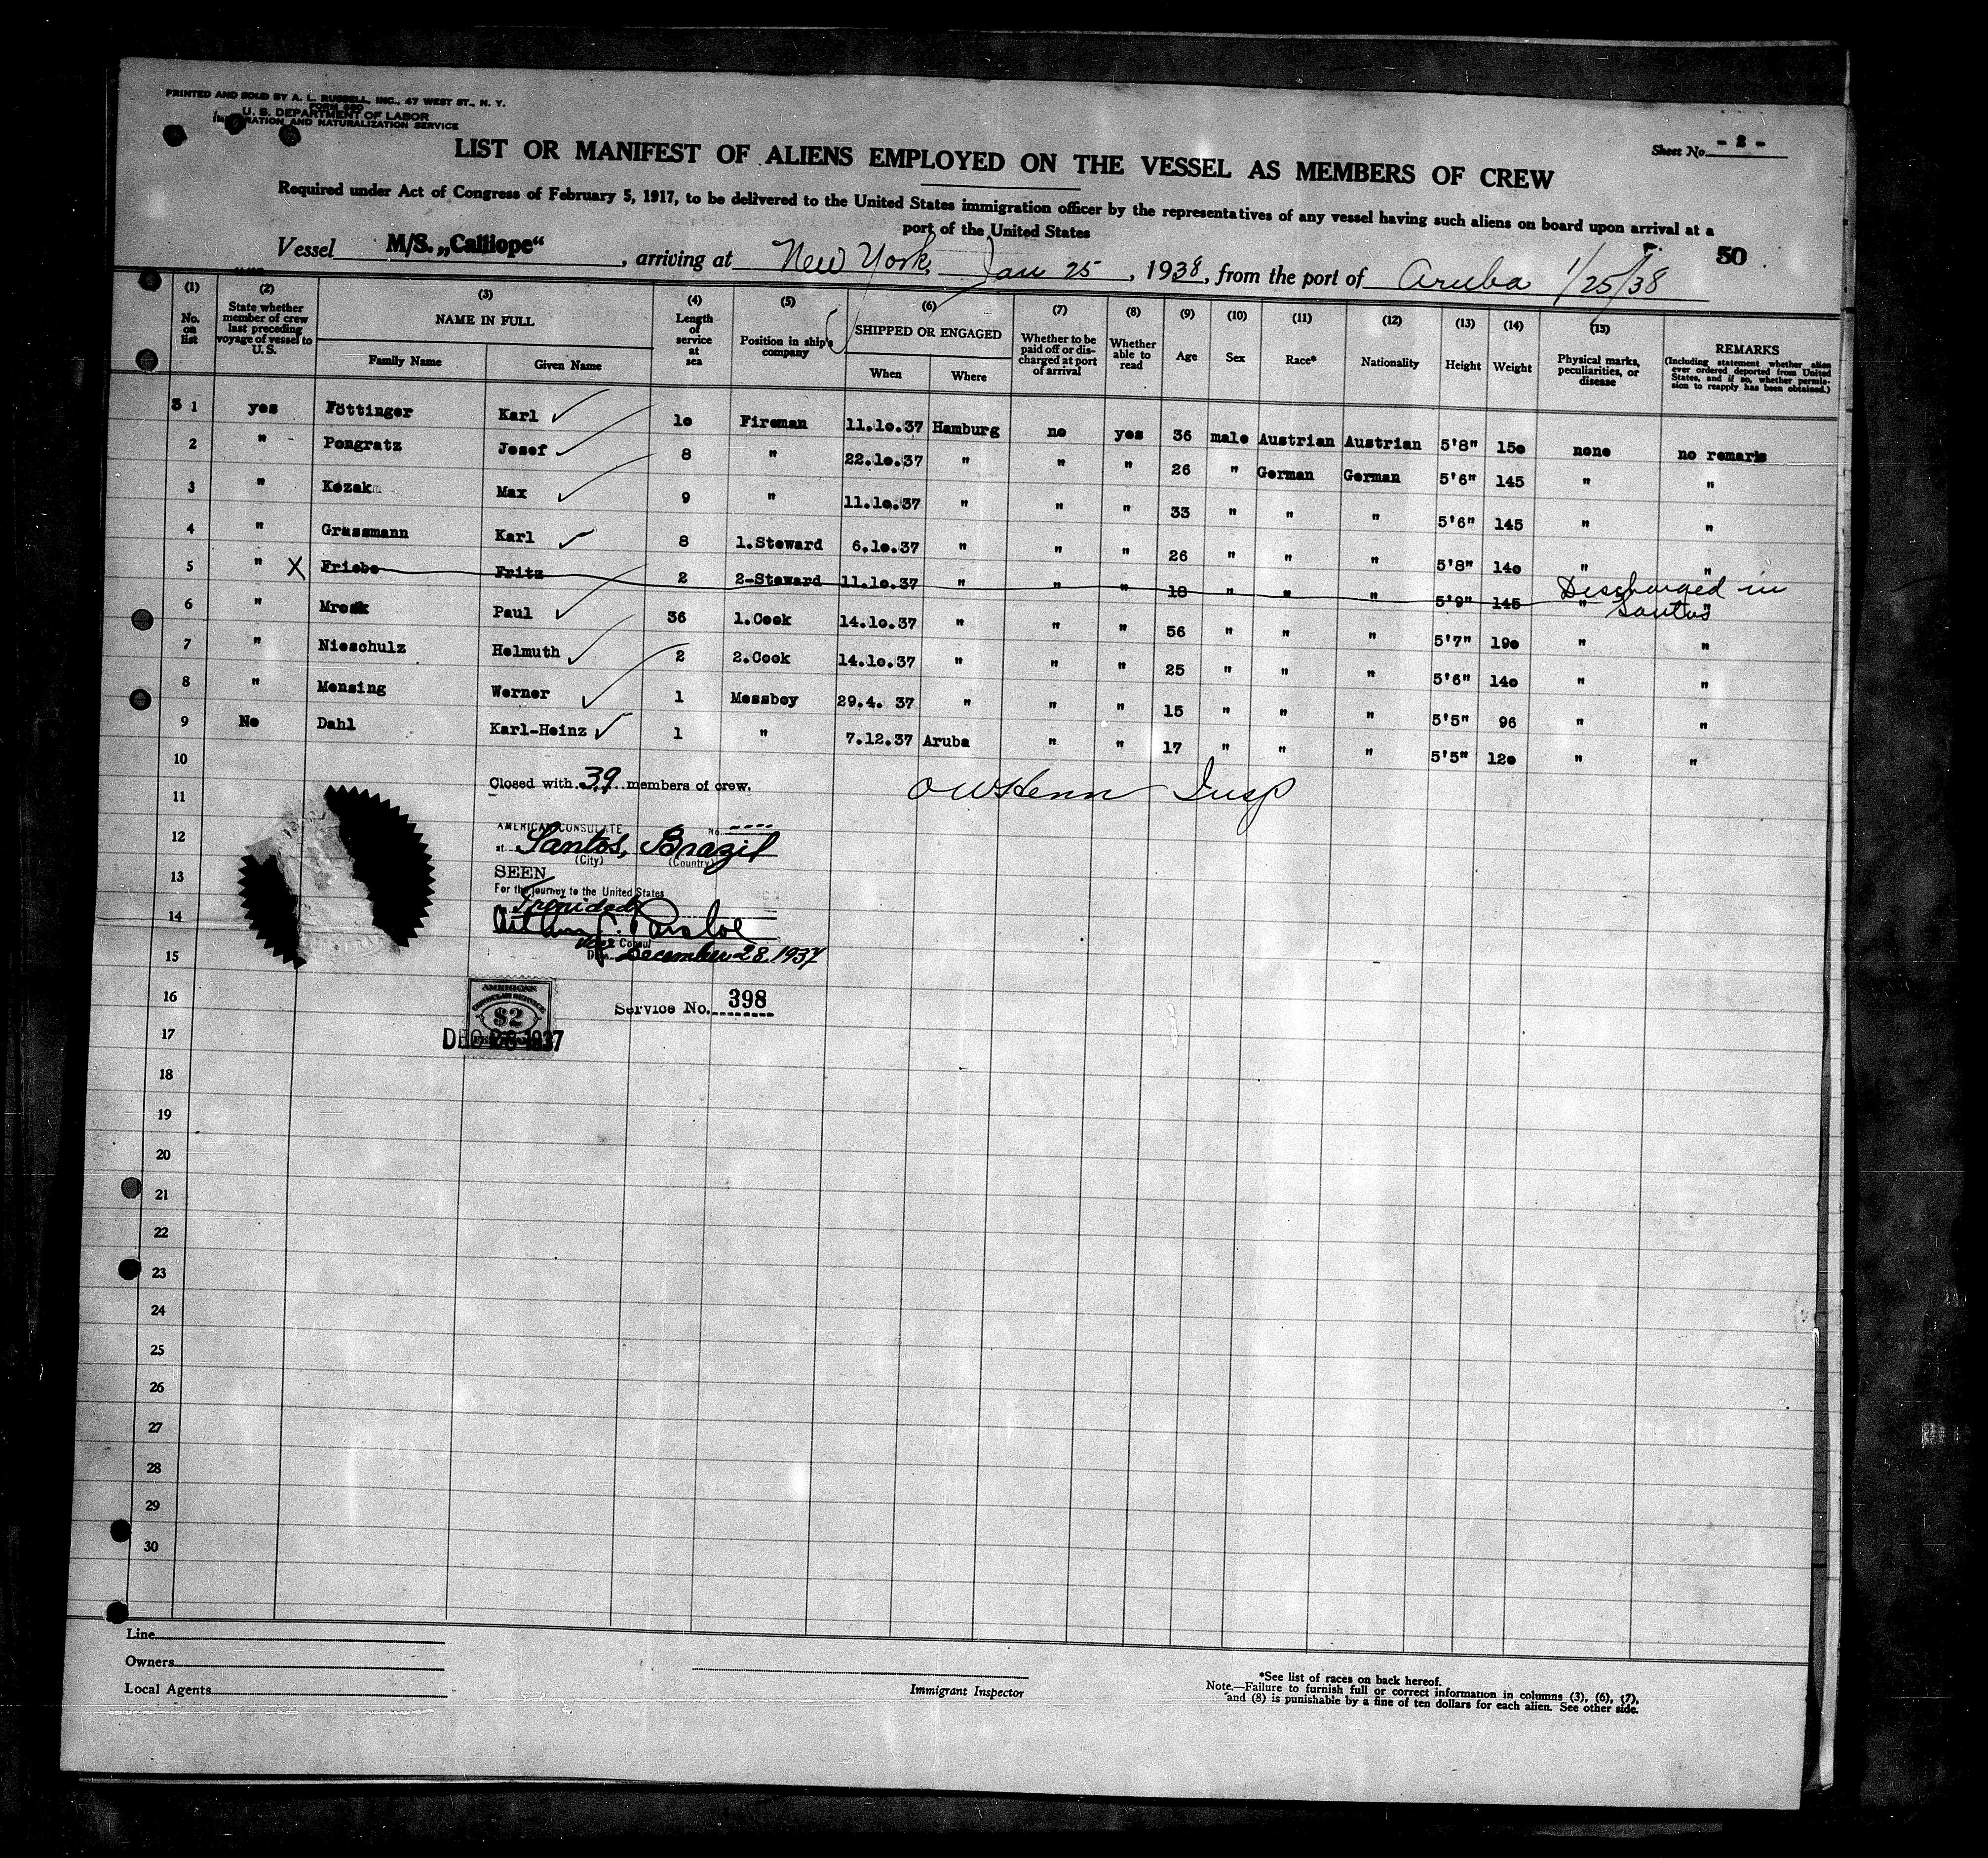 PRINTED AND SOLD BY A. L. RUSSELL, INC., 47 WEST ST., N. Y.
FORM 680
U. S. DEPARTMENT OF LABOR
IMMIGRATION AND NATURALIZATION SERVICE
Sheet No. - 2 -
LIST OR MANIFEST OF ALIENS EMPLOYED ON THE VESSEL AS MEMBERS OF CREW
Required under Act of Congress of February 5, 1917, to be delivered to the United States immigration officer by the representatives of any vessel having such aliens on board upon arrival at a
port of the United States
50
Vessel M/S. „Calliope“, arriving at New York, Jan 25, 1938, from the port of Aruba 1/25/38
(1) No. on list (2) State whether member of crew last preceding voyage of vessel to U. S. (3) NAME IN FULL Family Name Given Name (4) Length of service at sea (5) Position in ship's company (6) SHIPPED OR ENGAGED When Where (7) Whether to be paid off or discharged at port of arrival (8) Whether able to read (9) Age (10) Sex (11) Race* (12) Nationality (13) Height (14) Weight (15) Physical marks, peculiarities, or disease REMARKS (Including statement whether alien ever ordered deported from United States, and if so, whether permission to reapply has been obtained.)
3 1 yes Föttinger Karl 10 Fireman 11.10.37 Hamburg no yes 36 male Austrian Austrian 5'8" 150 none no remarks
2 " Pongratz Josef 8 " 22.10.37 " " " 26 " German German 5'6" 145 " "
3 " Kozak Max 9 " 11.10.37 " " " 33 " " " 5'6" 145 " "
4 " Grassmann Karl 8 1.Steward 6.10.37 " " " 26 " " " 5'8" 140 " "
5 " X Friebe Fritz 2 2-Steward 11.10.37 " " " 18 " " " 5'9" 145 " " Discharged in Santos
6 " Mrosk Paul 36 1.Cook 14.10.37 " " " 56 " " " 5'7" 190 " "
7 " Nieschulz Helmuth 2 2.Cook 14.10.37 " " " 25 " " " 5'6" 140 " "
8 " Mensing Werner 1 Messboy 29.4. 37 " " " 15 " " " 5'5" 96 " "
9 No Dahl Karl-Heinz 1 " 7.12.37 Aruba " " 17 " " " 5'5" 120 " "
10
Closed with 39 members of crew.
11
AMERICAN CONSULATE No.
12
at Santos, Brazil
(City) (Country)
13
SEEN
For the journey to the United States
Trinidad
14
Vice Consul
15
Date December 28, 1937
16
AMERICAN CONSULAR SERVICE $2
Service No. 398
17
DEC 28 1937
18
19
20
21
22
23
24
25
26
27
28
29
30
Line
Owners
Local Agents
Immigrant Inspector
*See list of races on back hereof.
Note.—Failure to furnish full or correct information in columns (3), (6), (7),
and (8) is punishable by a fine of ten dollars for each alien. See other side.